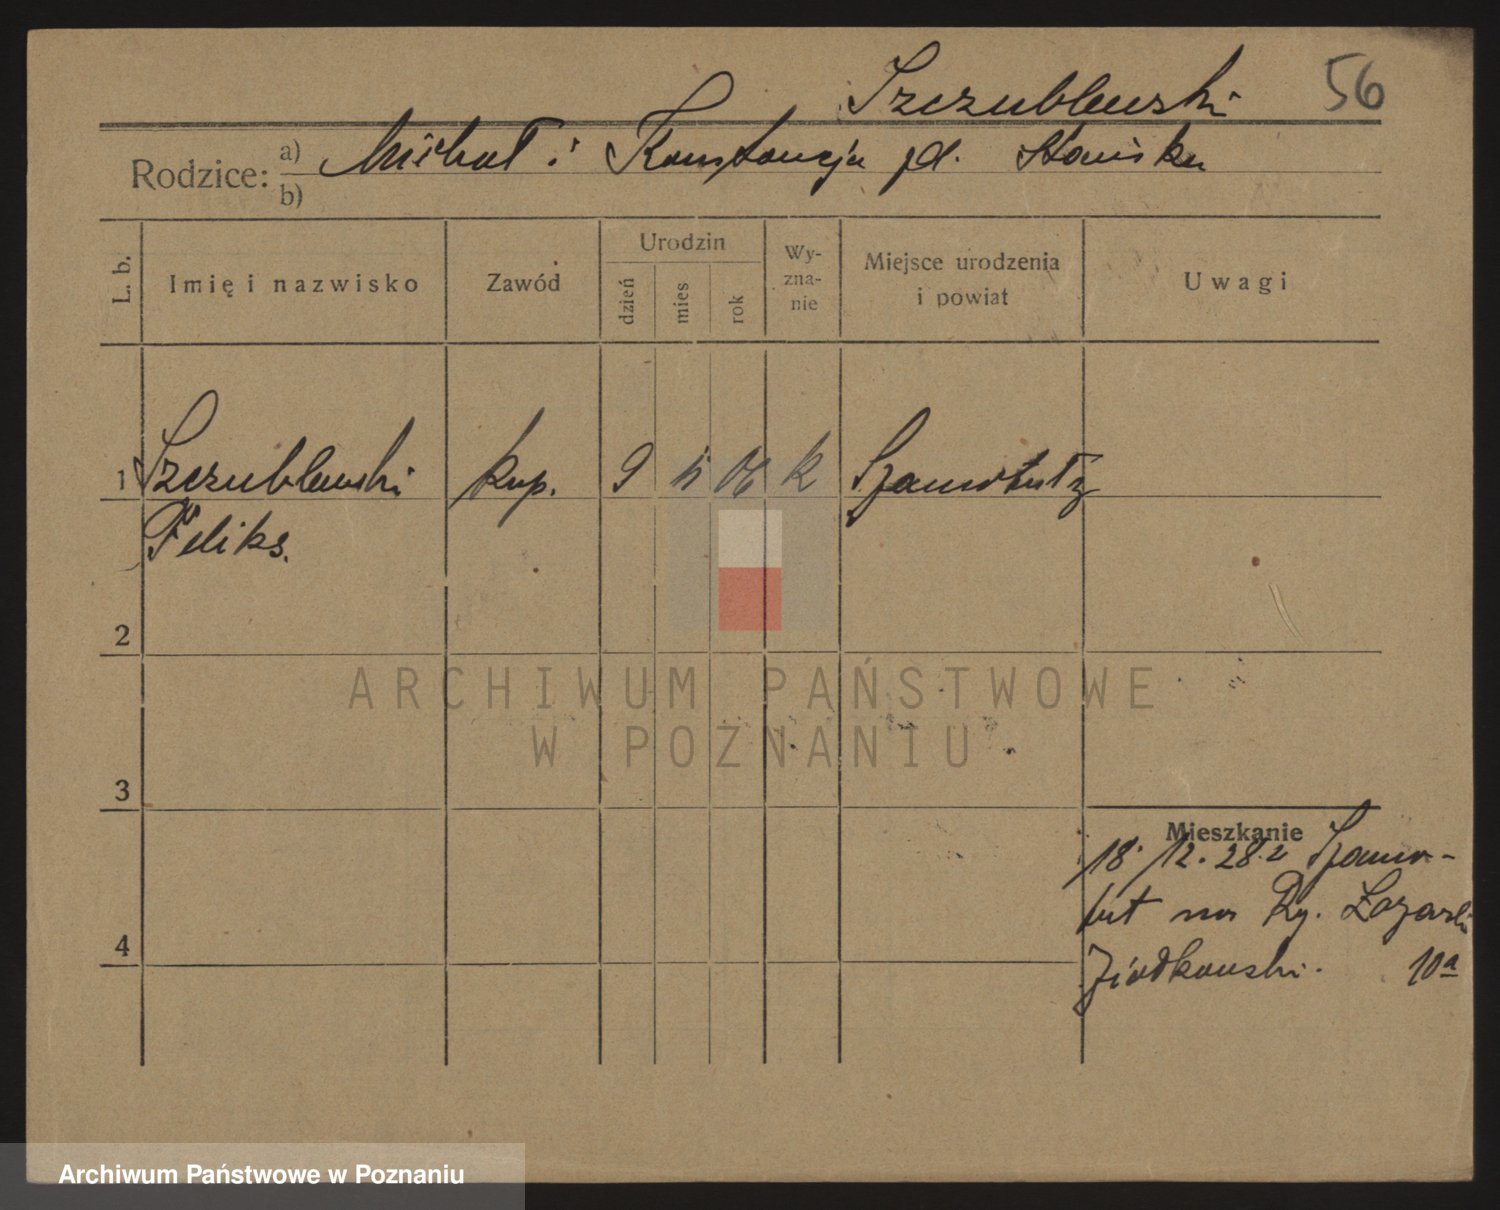 Szczublewski 56
Rodzice: a) Michał i Konstancja zd. Słomska
b)
L. b. Imię i nazwisko Zawód Urodzin dzień mies rok Wy-zna-nie Miejsce urodzenia i powiat Uwagi
1 Szczublewski kup. 9 11 06 k Szamotuły
Feliks.
2
ARCHIWUM PAŃSTWOWE
W POZNANIU
3
Mieszkanie
18. 12. 28. z Szamo-
tuł na Ry. Łazarski
Ziółkowski. 10a
4
Archiwum Państwowe w Poznaniu